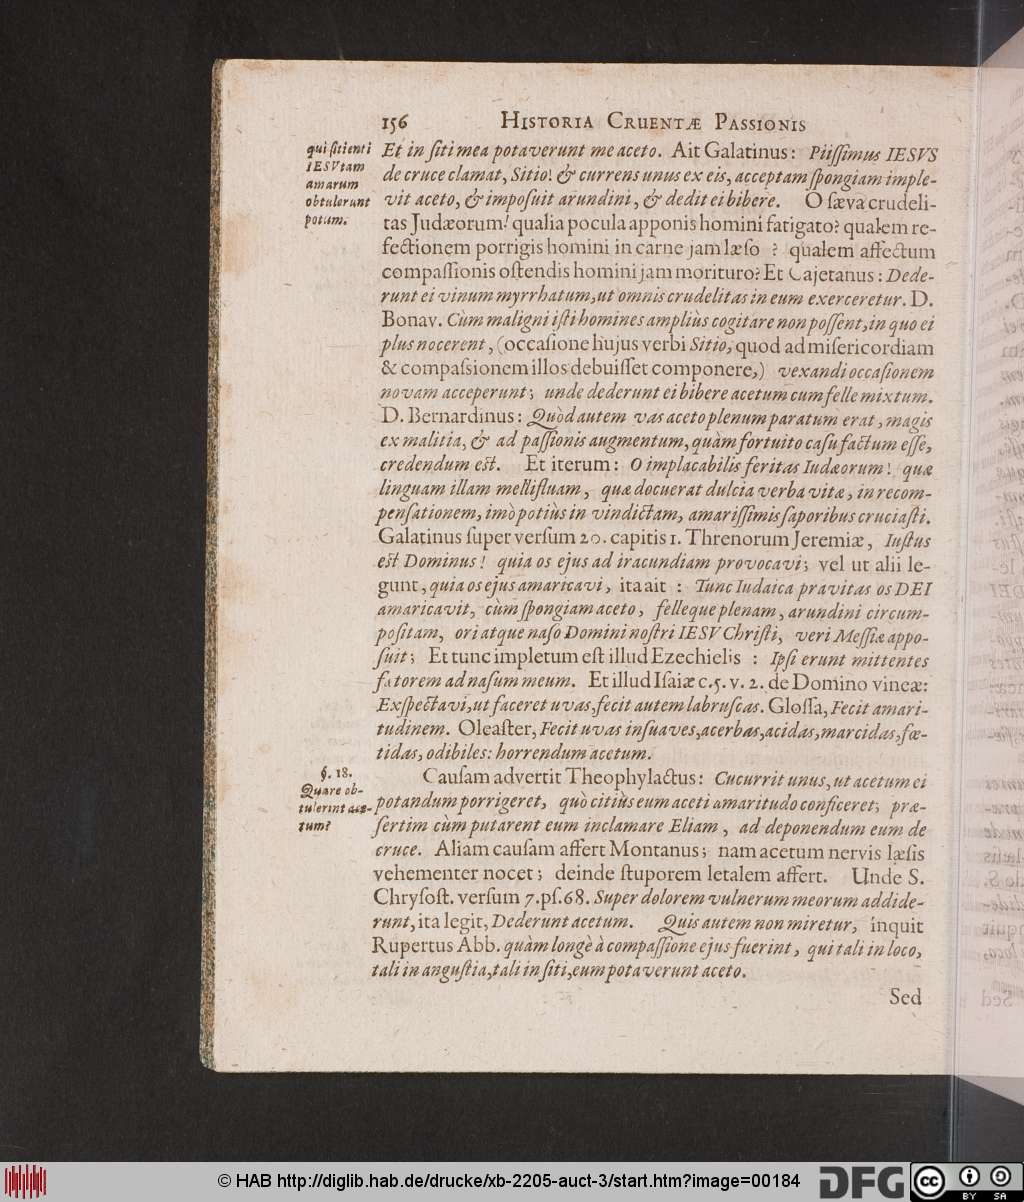 156 HISTORIA CRUENTÆ PASSIONIS
qui ſitienti
IESV tam
amarum
obtulerunt
potum.
Et in ſiti mea potaverunt me aceto. Ait Galatinus: Piiſſimus IESVS
de cruce clamat, Sitio! & currens unus ex eis, acceptam ſpongiam imple-
vit aceto, & impoſuit arundini, & dedit ei bibere. O ſæva crudeli-
tas Judæorum! qualia pocula apponis homini fatigato? qualem re-
fectionem porrigis homini in carne jam læſo ? qualem affectum
compaſſionis oſtendis homini jam morituro? Et Cajetanus: Dede-
runt ei vinum myrrhatum, ut omnis crudelitas in eum exerceretur. D.
Bonav. Cùm maligni iſti homines ampliùs cogitare non poſſent, in quo ei
plus nocerent, (occaſione hujus verbi Sitio, quod ad miſericordiam
& compaſsionem illos debuiſſet componere,) vexandi occaſionem
novam acceperunt; unde dederunt ei bibere acetum cum felle mixtum.
D. Bernardinus: Quòd autem vas aceto plenum paratum erat, magis
ex malitia, & ad paſſionis augmentum, quàm fortuito caſu factum eſſe,
credendum est. Et iterum: O implacabilis feritas Iudæorum! quæ
linguam illam mellifluam, quæ docuerat dulcia verba vitæ, in recom-
penſationem, imò potiùs in vindictam, amariſſimis ſaporibus cruciaſti.
Galatinus ſuper verſum 20. capitis 1. Threnorum Jeremiæ, Iuſtus
est Dominus! quia os ejus ad iracundiam provocavi; vel ut alii le-
gunt, quia os ejus amaricavi, ita ait : Tunc Iudaica pravitas os DEI
amaricavit, cùm ſpongiam aceto, felleque plenam, arundini circum-
poſitam, ori atque naſo Domini noſtri IESV Chriſti, veri Meſſiæ appo-
ſuit; Et tunc impletum eſt illud Ezechielis : Ipſi erunt mittentes
fætorem ad naſum meum. Et illud Iſaiæ c. 5. v. 2. de Domino vineæ:
Exſpectavi, ut faceret uvas, fecit autem labruſcas. Gloſſa, Fecit amari-
tudinem. Oleaſter, Fecit uvas inſuaves, acerbas, acidas, marcidas, fœ-
tidas, odibiles: horrendum acetum.
§. 18.
Quare ob-
tulerint ace-
tum?
Cauſam advertit Theophylactus: Cucurrit unus, ut acetum ei
potandum porrigeret, quò citiùs eum aceti amaritudo conficeret; præ-
ſertim cùm putarent eum inclamare Eliam, ad deponendum eum de
cruce. Aliam cauſam affert Montanus; nam acetum nervis læſis
vehementer nocet; deinde ſtuporem letalem affert. Unde S.
Chryſoſt. verſum 7. pſ. 68. Super dolorem vulnerum meorum addide-
runt, ita legit, Dederunt acetum. Quis autem non miretur, inquit
Rupertus Abb. quàm longè à compaſſione ejus fuerint, qui tali in loco,
tali in anguſtia, tali in ſiti, eum potaverunt aceto.
Sed
© HAB http://diglib.hab.de/drucke/xb-2205-auct-3/start.htm?image=00184
DFG
cc
BY SA